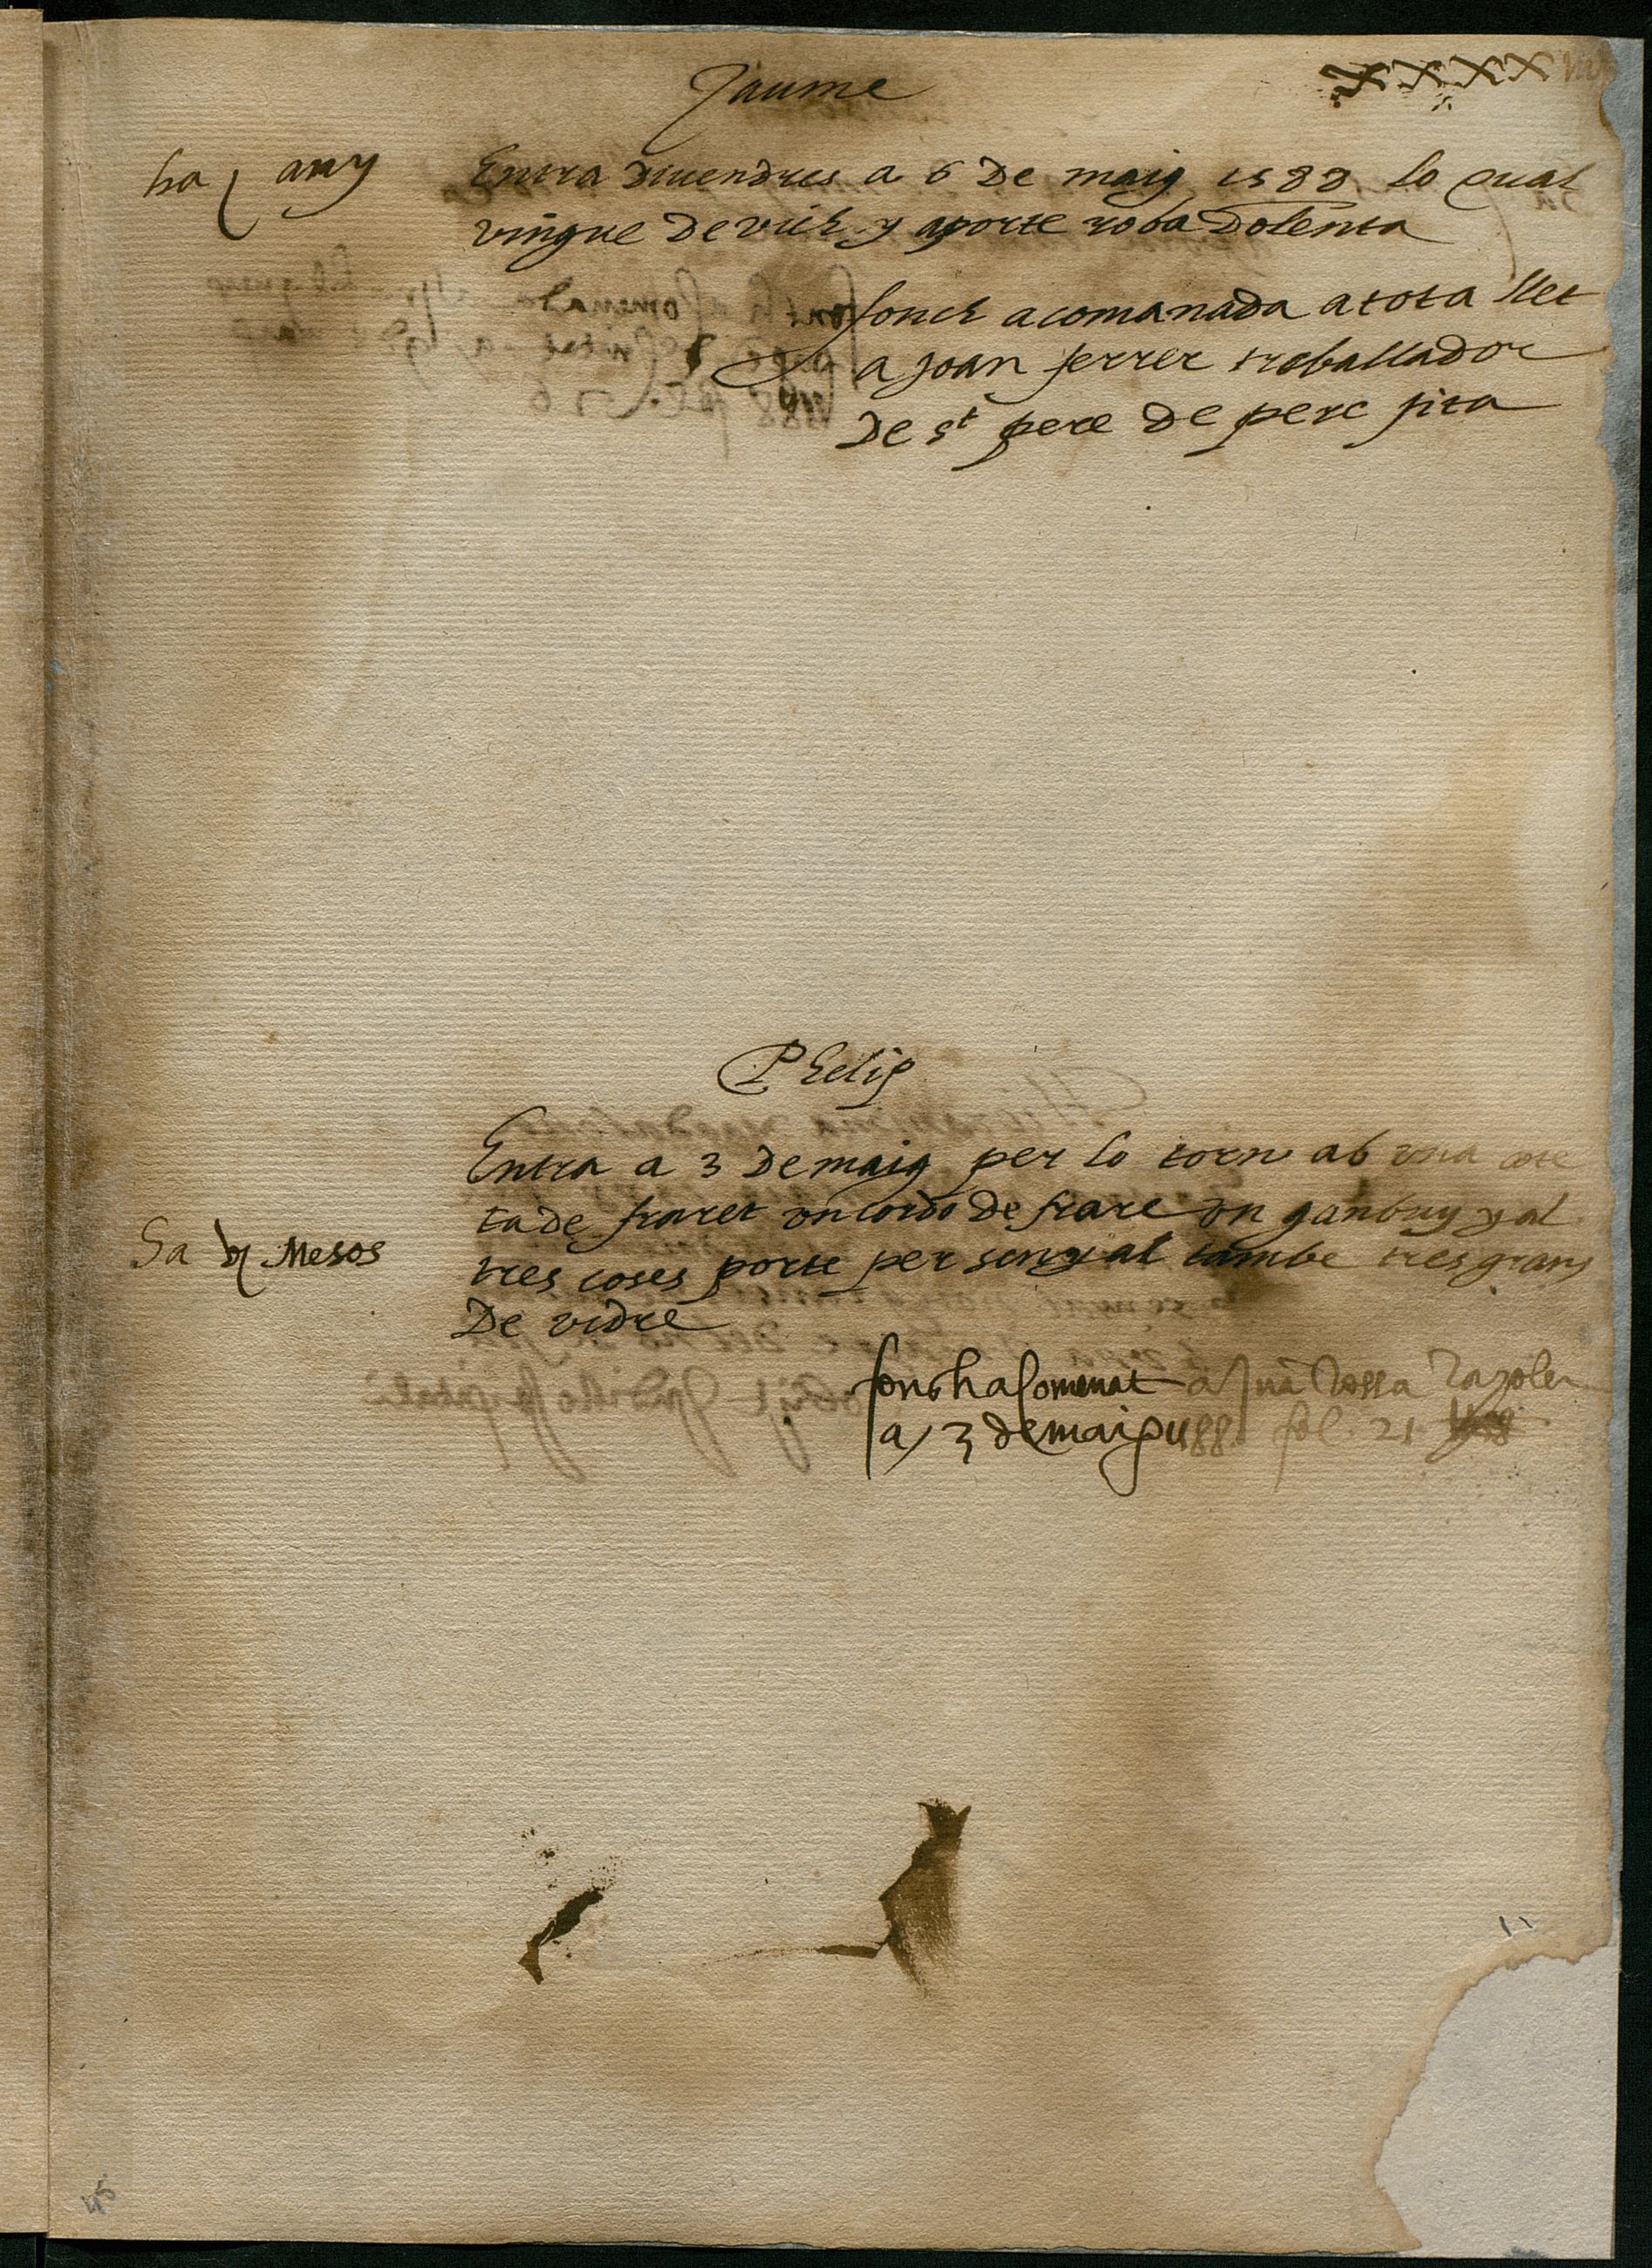 Jaume
xxxxvii
ha j any
Entra divendres a 6 de maig 1588 lo qual
vingue de vich y aporte roba dolenta
fonch acomanada a tota llet
a joan ferrer traballador
de st pere de perc fita
Phelip
Entra a 3 de maig per lo torn ab una cote
ta de fraret un cordo de frare un ganbuy y al
Ha Mesos
tres coses porte per senyal tambe tres grans
de vidre
fonch acomenat a Jua Rossa
a 3 de maig 1588 fol. 21
45